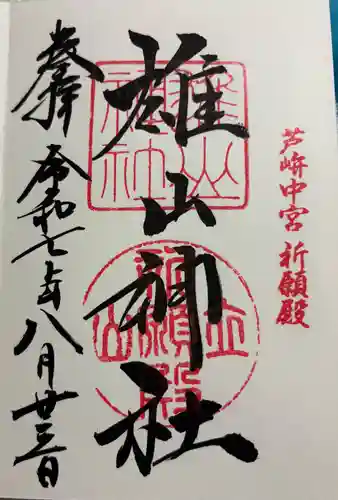 芦峅中宮 祈願殿
雄山神社
登拝 令和七年八月廿三日
雄山神社
立山祈願殿